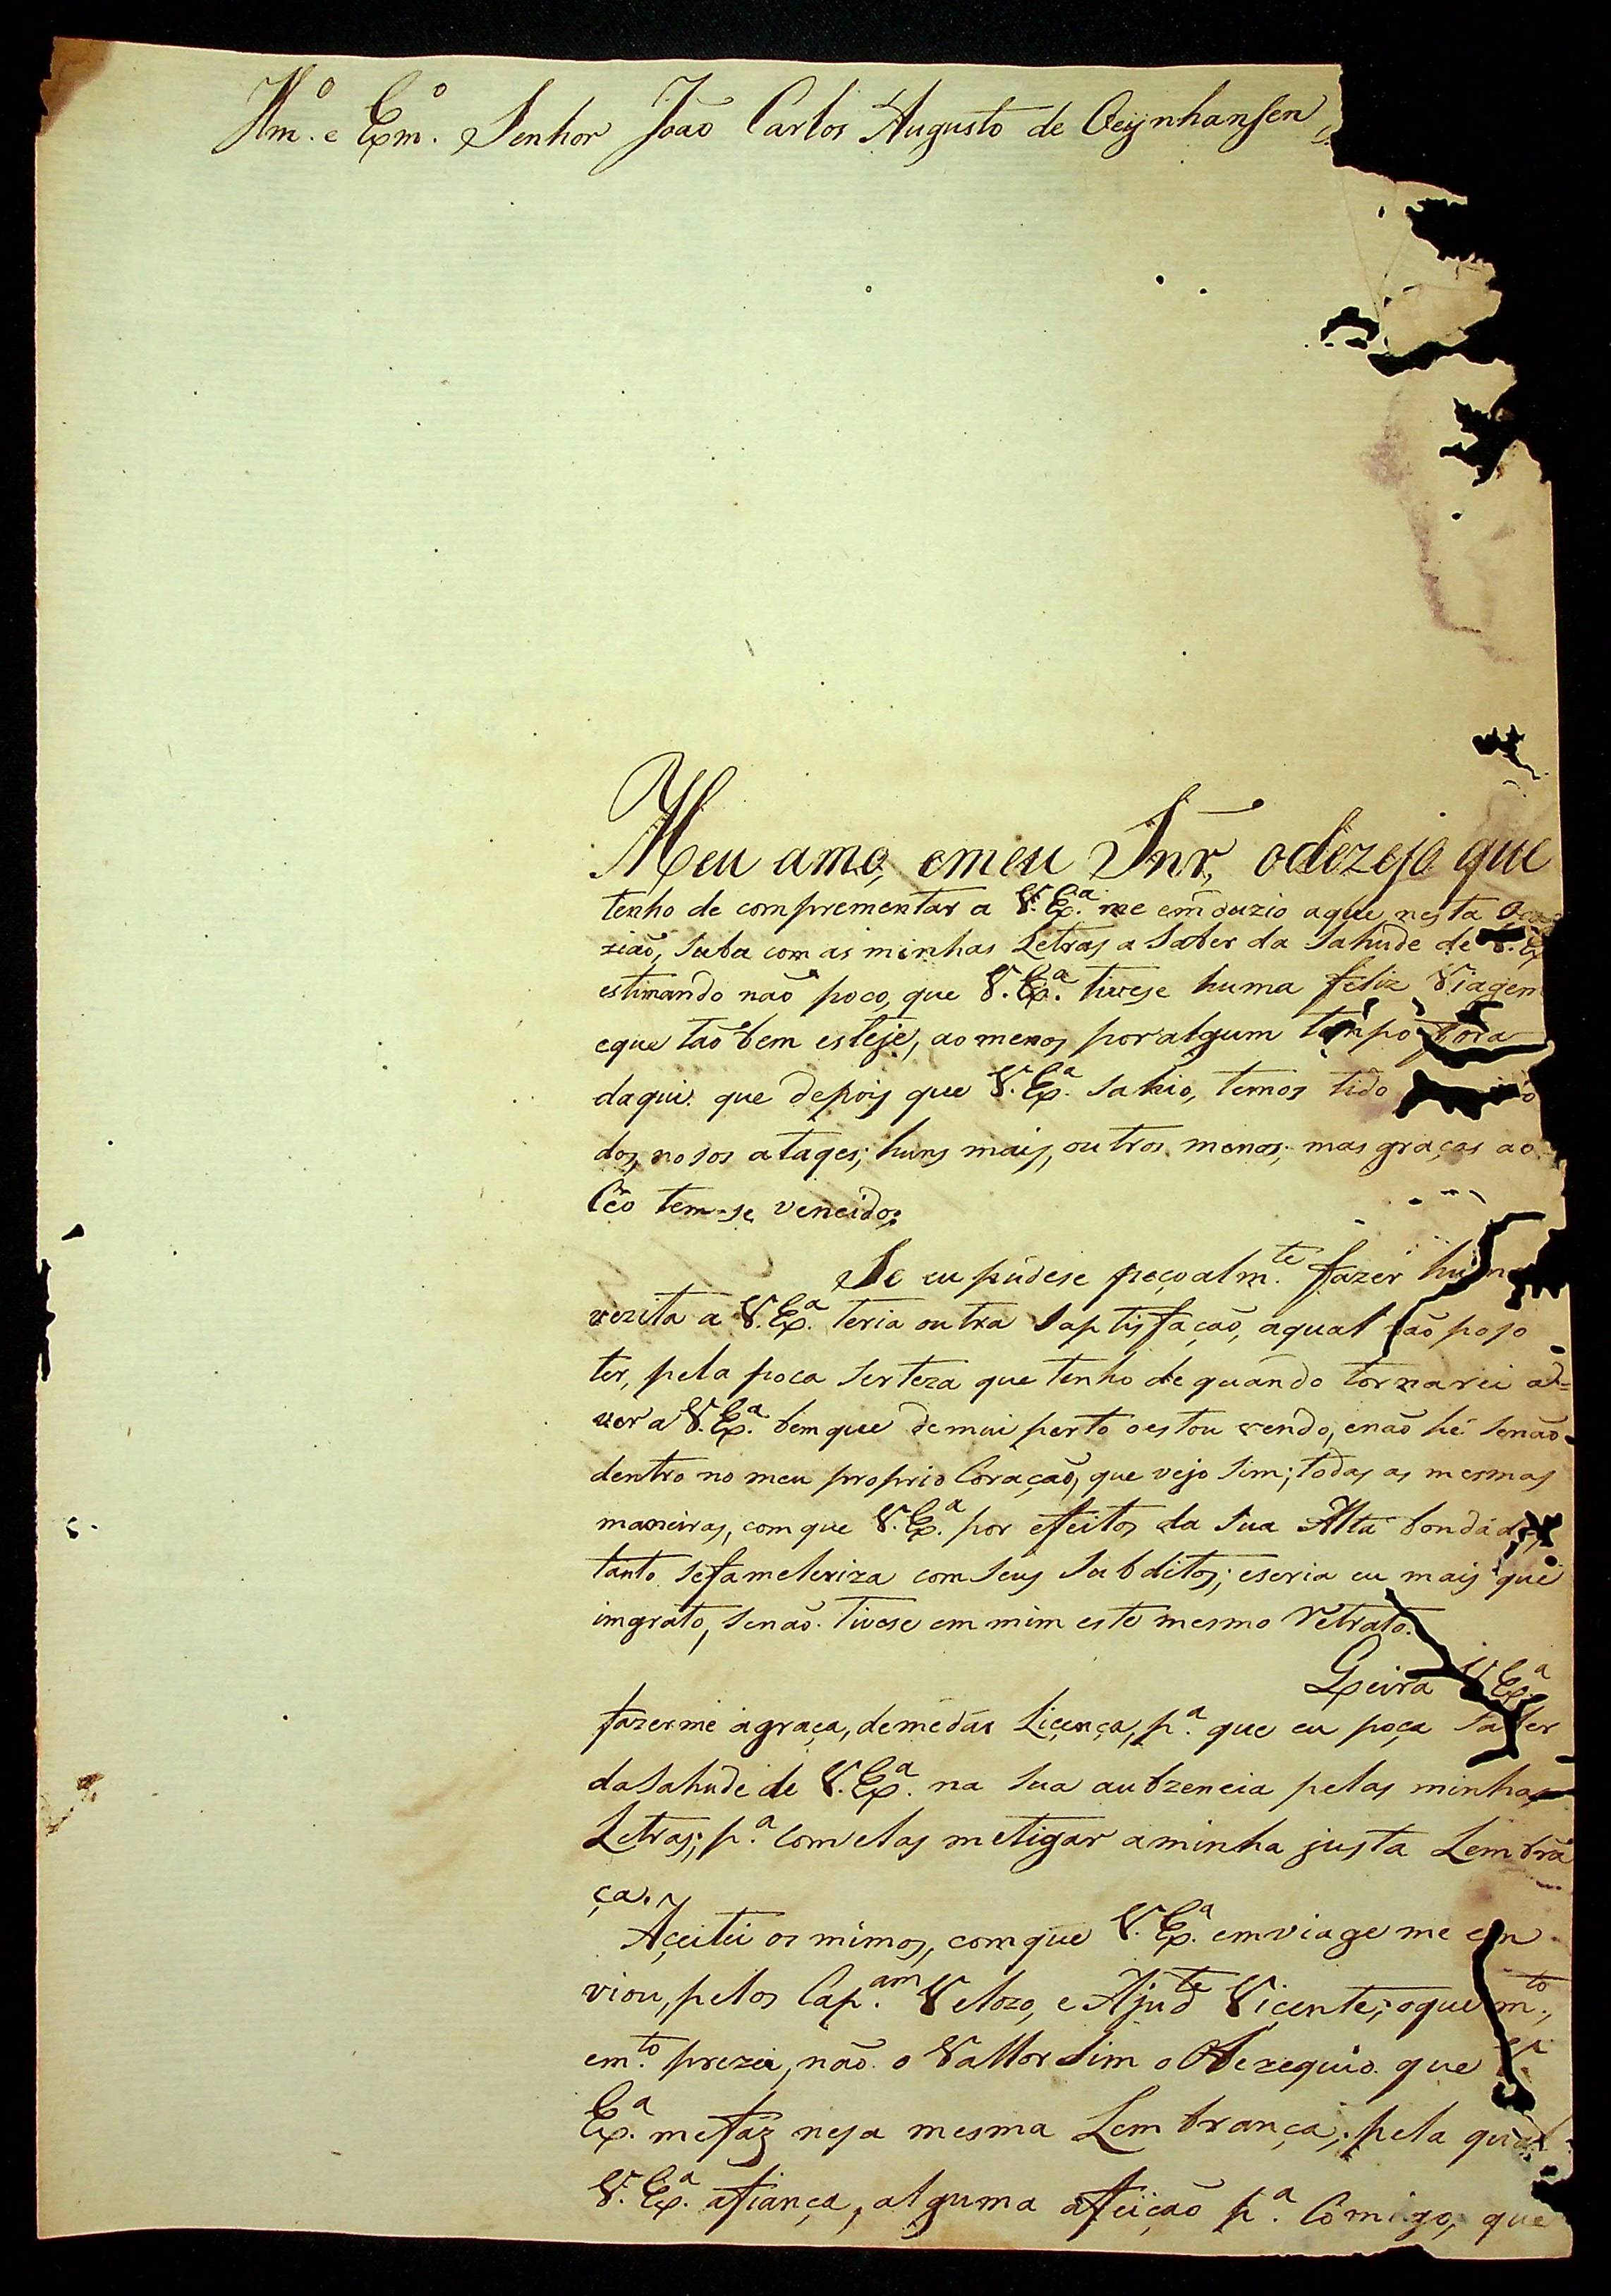 Ilm.º e Exm.º Senhor João Carlos Augusto de Oeÿnhansen,
Meu amo, emeu Snr, odezejo que
tenho de comprementar a V. Ex.ª me emduzio aque, nesta Oca
zião, suba com as minhas Letras a Saber da Sahude de V. Ex
estimando não poco, que V. Ex.ª tivese huma feliz Viagem
eque tão bem esteje, ao menos por algum tempo fora
daqui. que depois que V. Ex.ª Sahio, temos tido
dos nosos ataqes; huns mais, outros menos; mas graças ao
Céo tem-se vencido;
Se eu pudese peçoalm.te fazer huma
vezita a V. Ex.ª teria outra Saptisfação, aqual não poso
ter, pela poca Serteza que tenho de quando tornarei a
ver a V. Ex.ª bem que de mui perto oestou vendo, enão hé Senão
dentro no meu proprio Coração, que vejo Sim; todas as mesmas
maneiras, com que V. Ex.ª por efeitos da Sua Alta bondáde,
tanto Sefameleriza com Seus Subditos; eseria eu mais que
imgrato, Senão tivese em mim este mesmo Retrato.
Qeira V. Ex.ª
fazerme agraça, demedár Licença, p.ª que eu poça Saber
daSahude de V. Ex.ª na Sua aubzencia pelas minhas
Letras; p.ª com elas metigar aminha justa Lembrã
ça.
Açeitei os mimos, comque V. Ex.ª emviage me em
viou, pelos Cap.am Velozo, e Ajud.te Viçente; oque m.to,
em.to prezei, não o Vallor Sim o Obzequio que V.
Ex.ª mefáz nesa mesma Lembrança; pela qual
V. Ex.ª afiança, alguma afeição p.ª Comigo, que